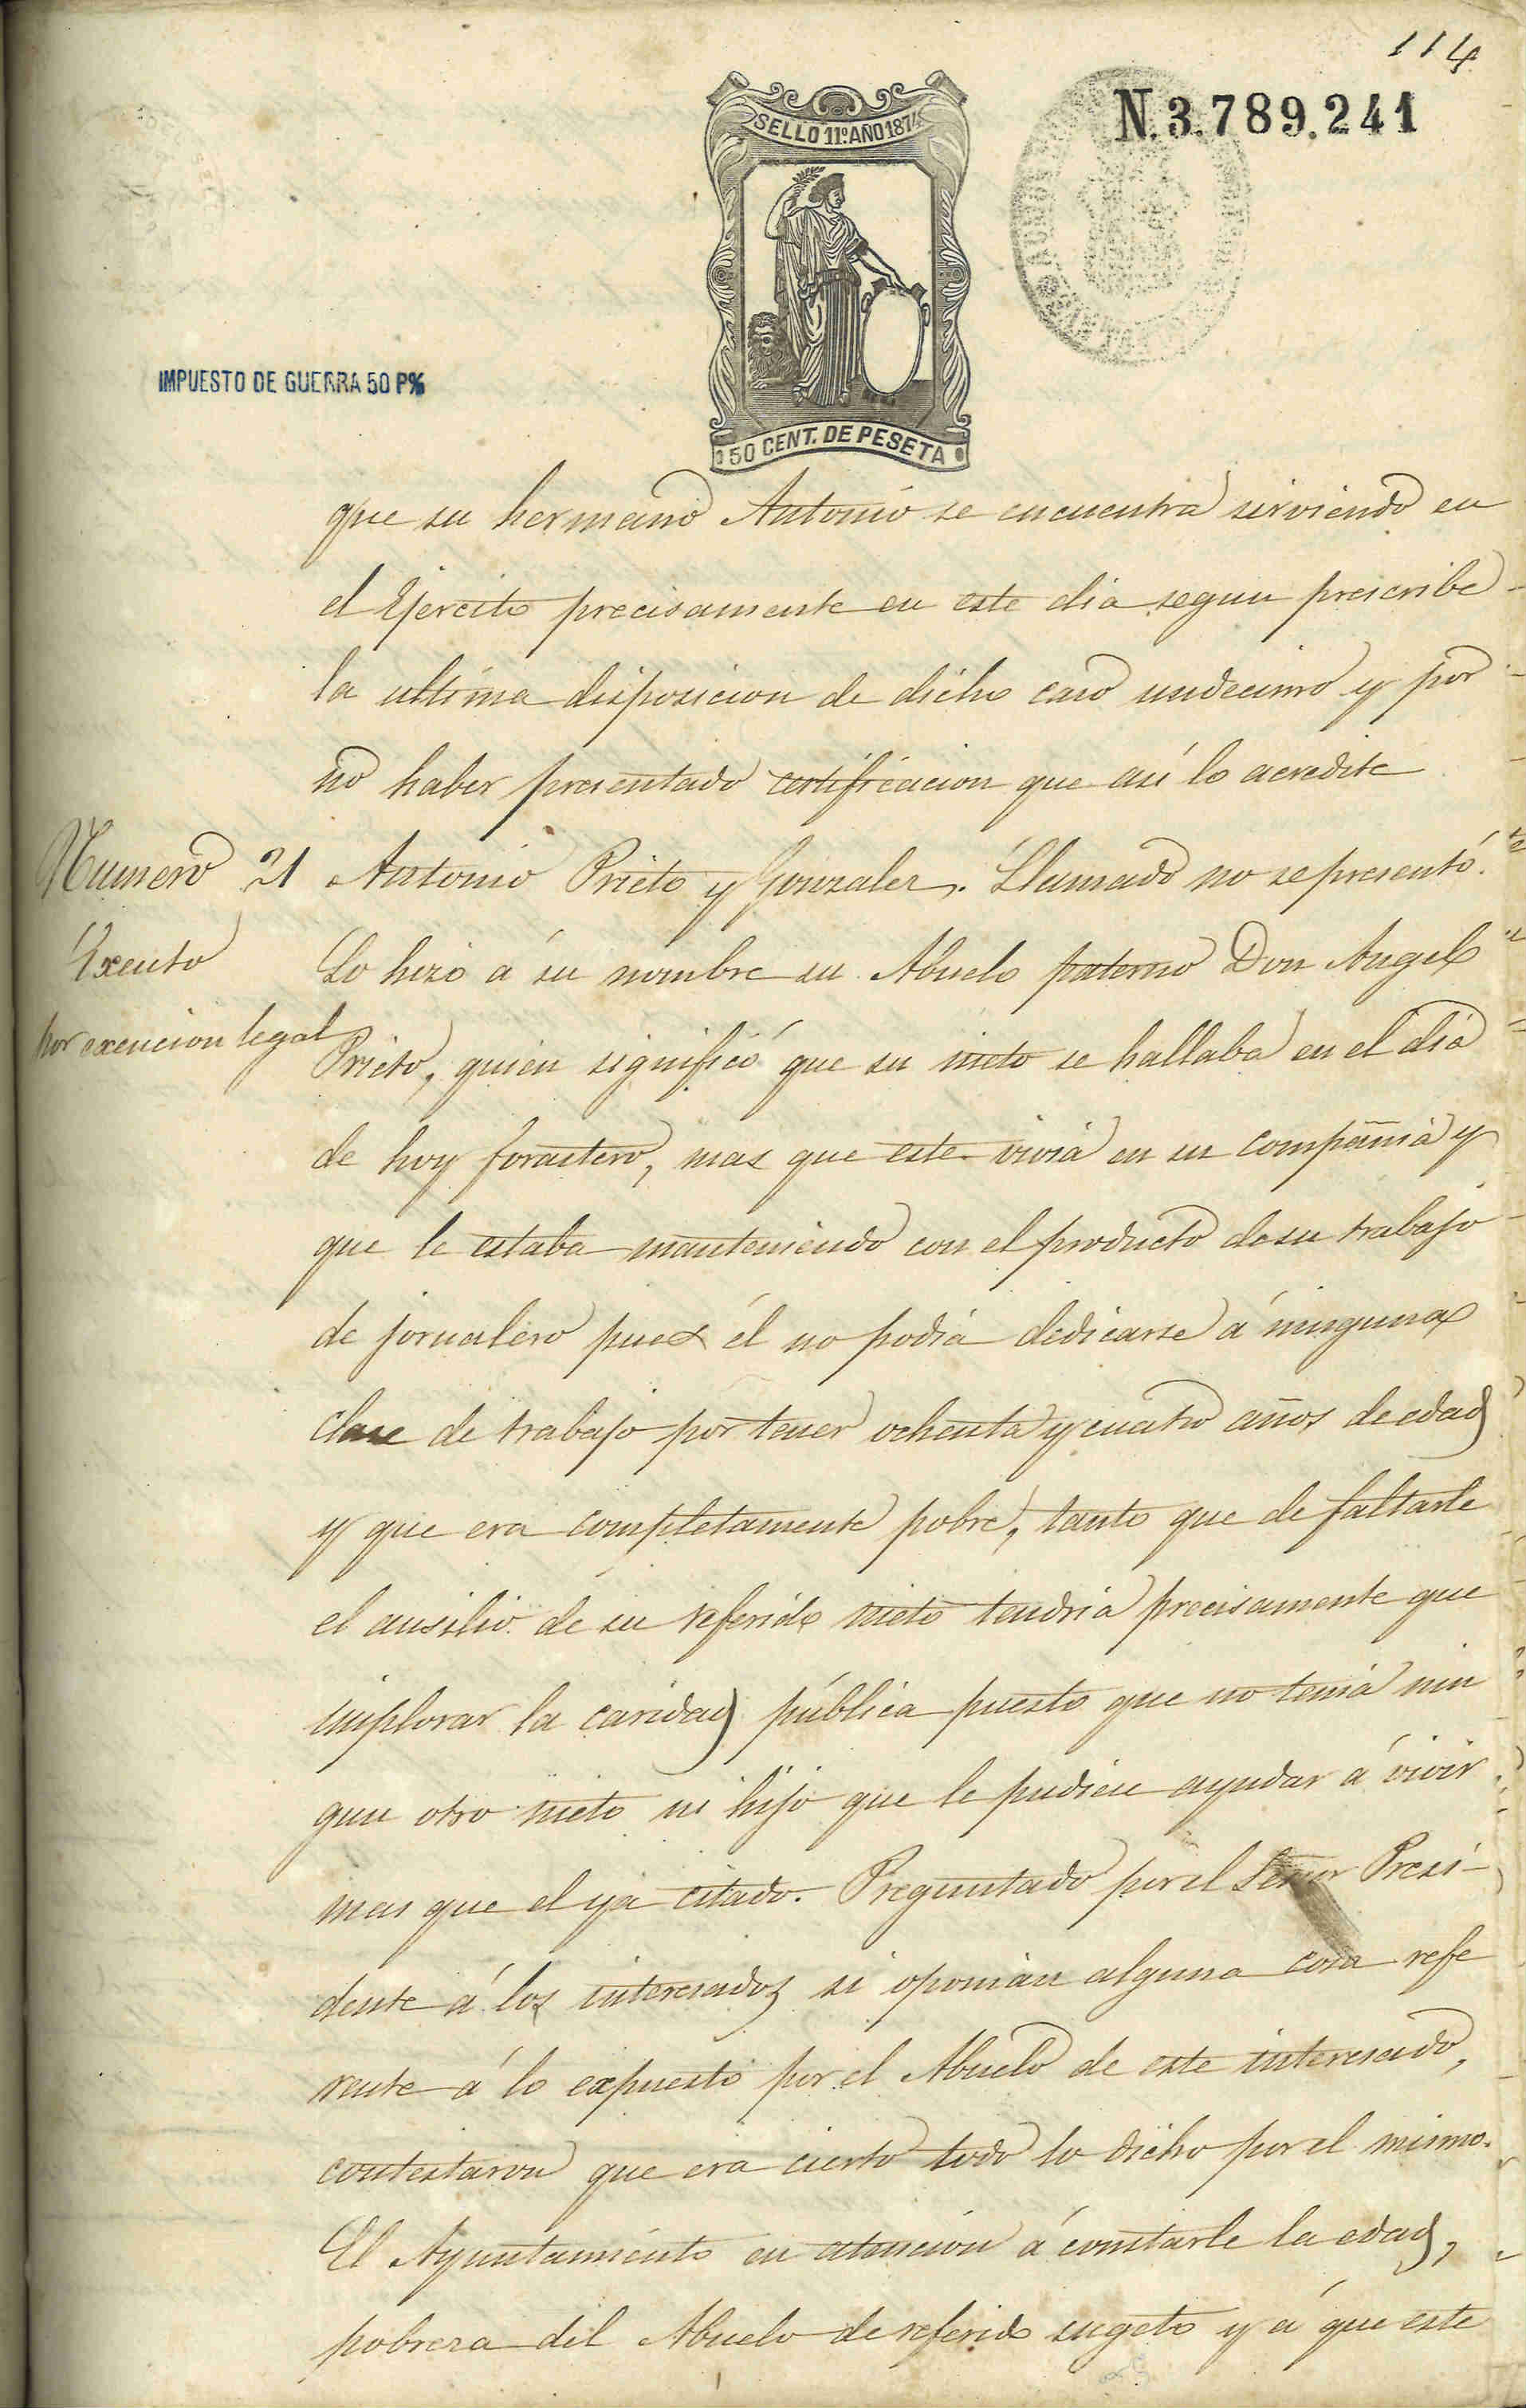 114
N.3.789.241
SELLO 11º AÑO 1874
IMPUESTO DE GUERRA 50 P%
50 CENT. DE PESETA
que su hermano Antonio se encuentra sirviendo en
el Ejercito precisamente en este dia segun prescribe
la ultima disposicion de dicho caso undecimo y por
no haber presentado certificacion que así lo acredite
Numero 21 Antonio Prieto y Gonzalez. Llamado no se presentó.
Exento Lo hizo á su nombre su Abuelo paterno Don Angel
por exencion legal Prieto, quien significó que su nieto se hallaba en el dia
de hoy forastero, mas que este vivia en su compañia y
que le estaba manteniendo con el producto de su trabajo
de jornalero pues él no podia dedicarse á ninguna
clase de trabajo por tener ochenta y cuatro años de edad
y que era completamente pobre, tanto que de faltarle
el ausilio de su referido nieto tendria precisamente que
implorar la caridad pública puesto que no tenia nin
gun otro nieto ni hijo que le pudiese ayudar á vivir
mas que el ya citado. Preguntado por el Señor Presi-
dente á los interesados si oponian alguna cosa refe
rente á lo expuesto por el Abuelo de este interesado,
contestaron que era cierto todo lo dicho por el mismo.
El Ayuntamiento en atencion á constarle la edad,
pobreza del Abuelo de referido sugeto y á que este